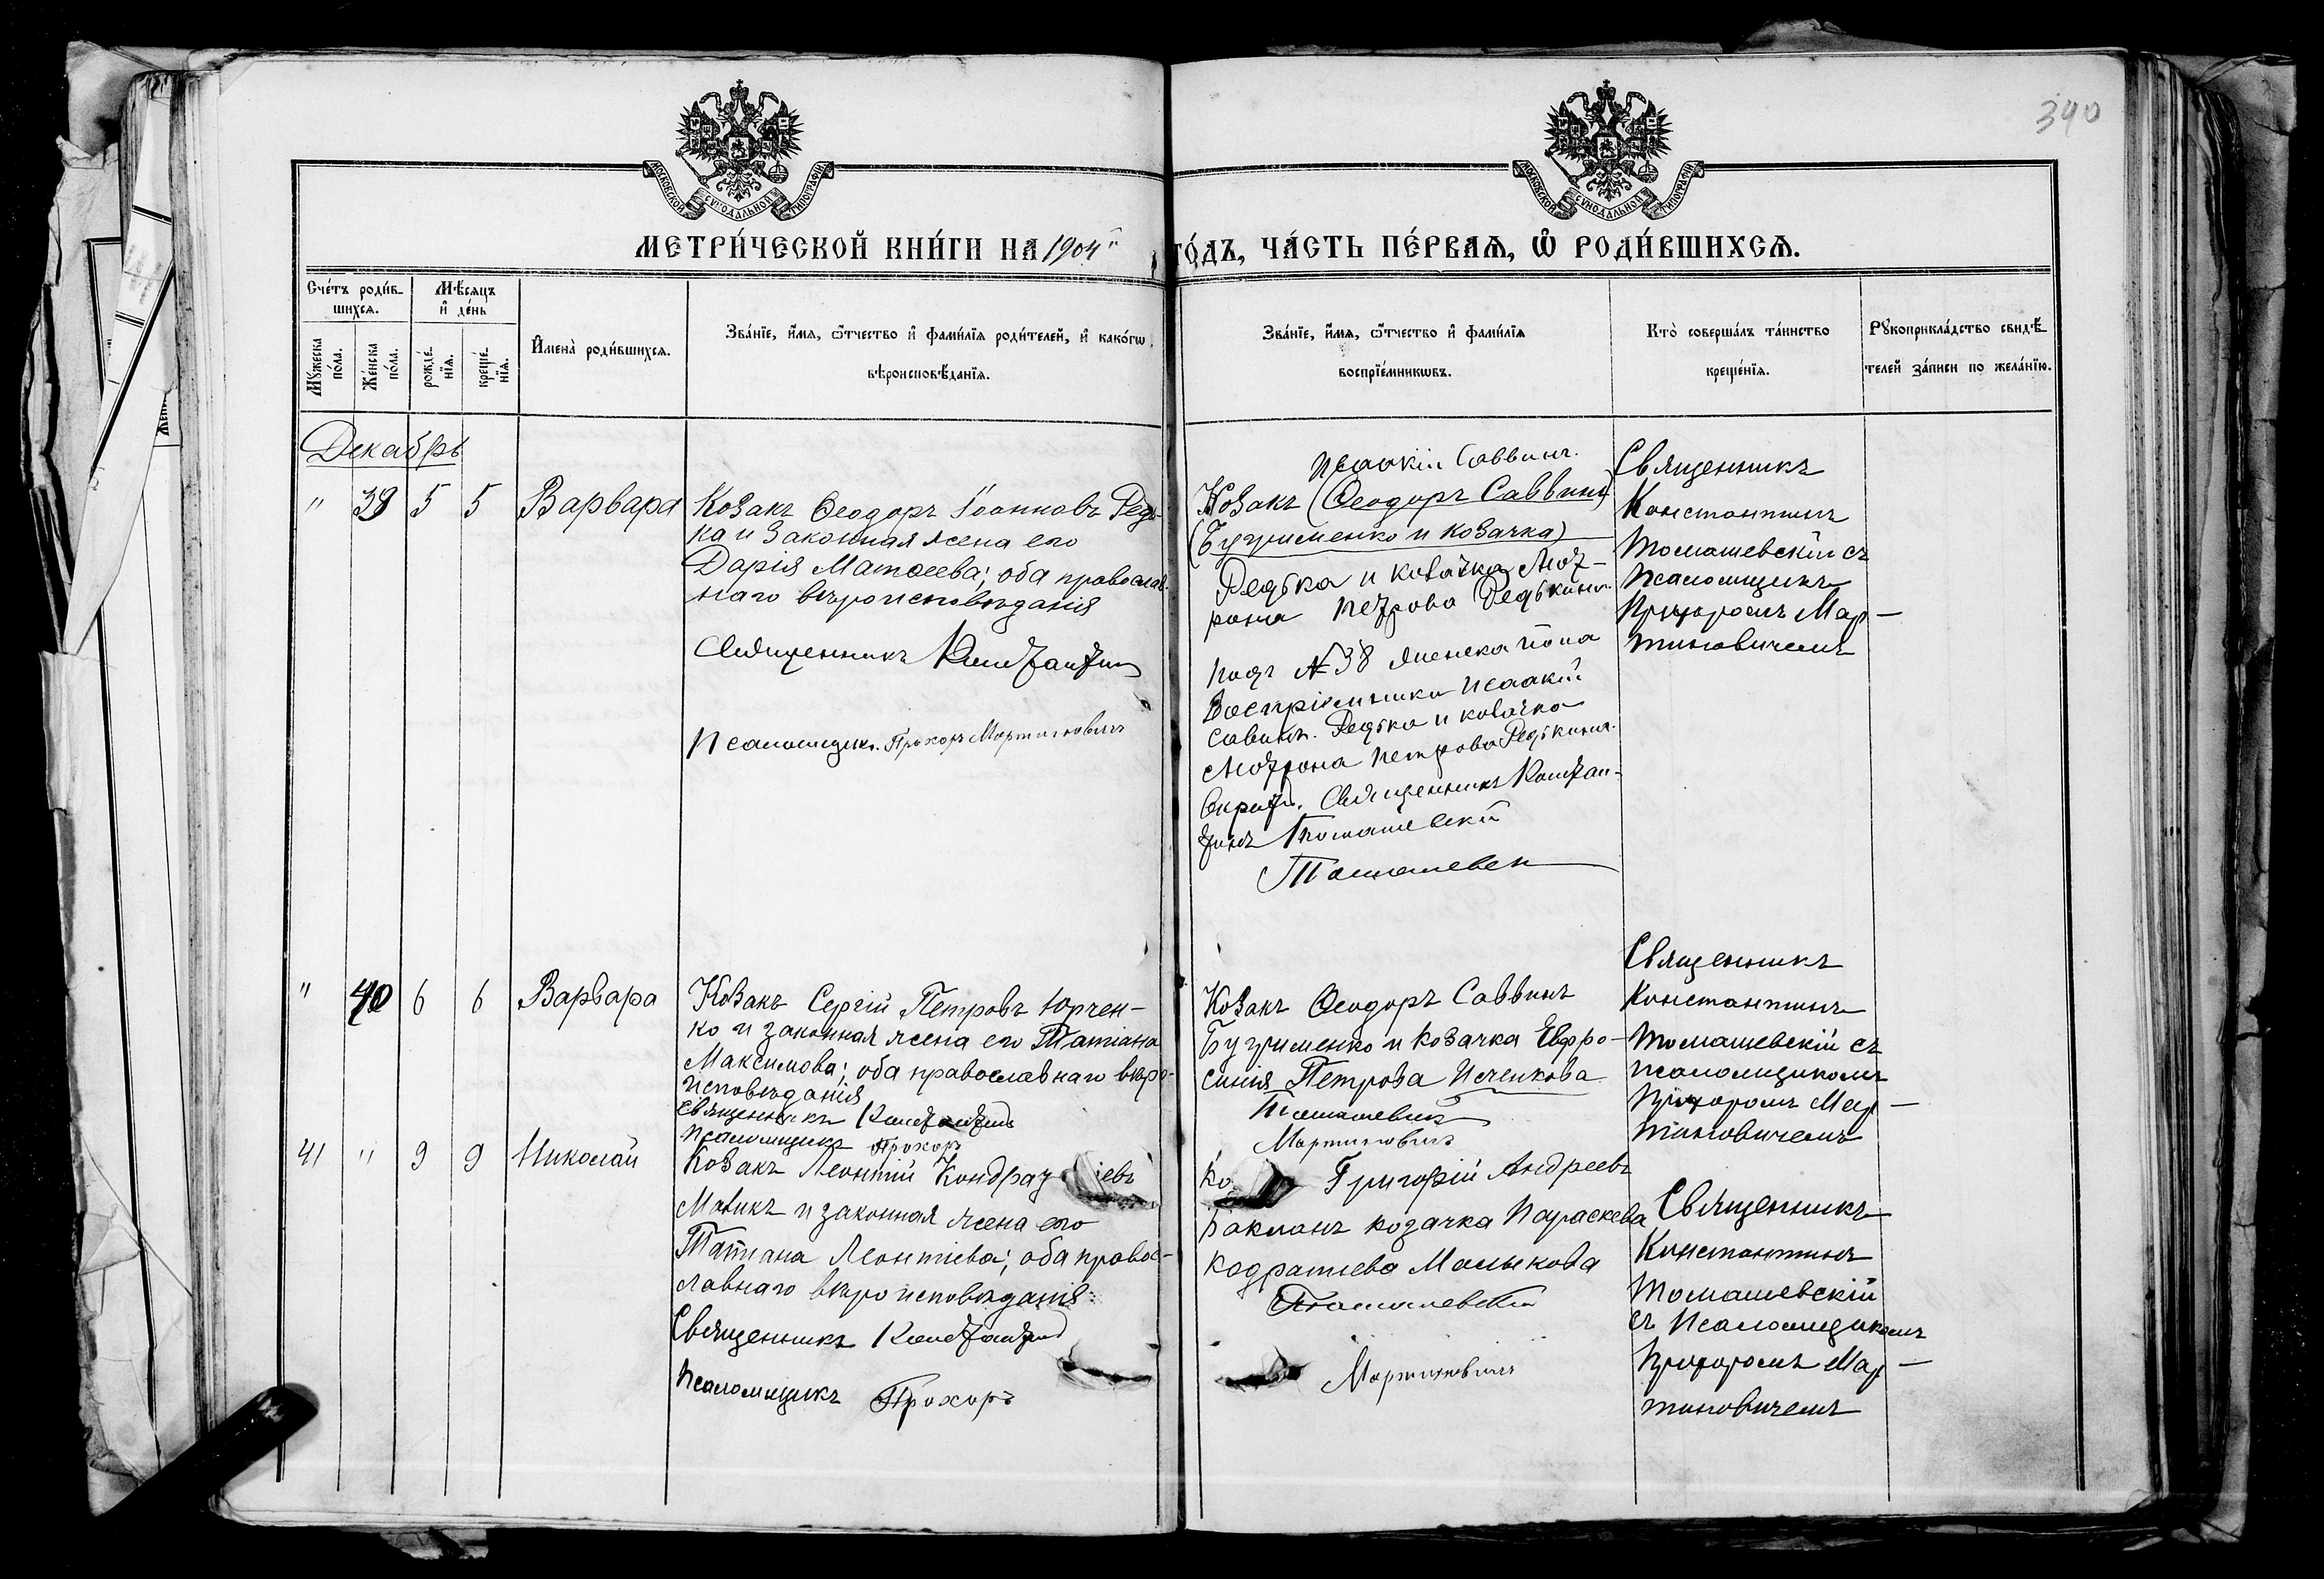 340
МОСКОВСКОЙ СѴНОДАЛЬНОЙ ТИПОГРАФІИ
МОСКОВСКОЙ СѴНОДАЛЬНОЙ ТИПОГРАФІИ
МЕТРИ́ЧЕСКОЙ КНИ́ГИ НА 1904 ГО́ДЪ, ЧА́СТЬ ПЕ́РВАѦ, Ѡ РОДИ́ВШИХСѦ.
Сче́тъ роди́в-
шихсѧ.
Мꙋжеска
по́ла.
Же́нска
по́ла.
Мѣ́сѧцъ
и҆ де́нь
рожде́-
нїѧ.
креще́-
нїѧ.
И҆мена̀ роди́вшихсѧ.
Зва́нїе, и҆́мѧ, ѻ҆́тчество и҆ фами́лїѧ роди́телей, и҆ како́гѡ
вѣроисповѣ́данїѧ.
Зва́нїе, и҆́мѧ, ѻ҆́тчество и҆ фами́лїѧ
воспрїе́мникѡвъ.
Кто̀ соверша́лъ та́инство
креще́нїѧ.
Рꙋкоприкла́дство свидѣ́-
телей за́писи по жела́нїю.
Декабрь
" 39 5 5 Варвара
Козакъ Ѳеодоръ Іоанновъ Редь-
ка и законная жена его
Дарія Матѳеева; оба православ-
наго вѣроисповѣданія
Священникъ Константин
Псаломщикъ Прохоръ Мартиновичъ
Исаакій Саввинъ
Козакъ (Ѳеодоръ Саввинъ)
(Бугрименко и козачка)
Редька и козачка Мот-
рона Петрова Редькина.
Подъ № 38 женска пола
Воспріемники Исаакій
Савинъ Редька и козачка
Мотрона Петрова Редькина.
Священникъ Констан-
тинъ Томашевскій
Томашевск
Священникъ
Константинъ
Томашевскій съ
Псаломщикъ
Прохоромъ Мар-
тиновичемъ
" 40 6 6 Варвара
Козакъ Сергій Петровъ Юрчен-
ко и законная жена его Татіана
Максимова; оба православнаго вѣро-
исповѣданія
Священникъ Константинъ
Псаломщикъ Прохоръ
Козакъ Ѳеодоръ Саввинъ
Бугрименко и козачка Евфро-
синія Петрова Исченкова
Томашевскій
Мартиновичъ
Священникъ
Константинъ
Томашевскій съ
псаломщикомъ
Прохоромъ Мар-
тиновичемъ
41 " 9 9 Николай
Козакъ Леонтій Кондрат іевъ
и законная жена его
Татіана Леонтіева; оба право-
славнаго вѣроисповѣданія:
Священникъ Константинъ
Псаломщикъ Прохоръ
Ко Григорій Андреевъ
Бакланъ козачка Параскева
Кодратіева
Томашевскій
Мартиновичъ
Священникъ
Константинъ
Томашевскій
съ Псаломщикомъ
Прохоромъ Мар-
тиновичемъ